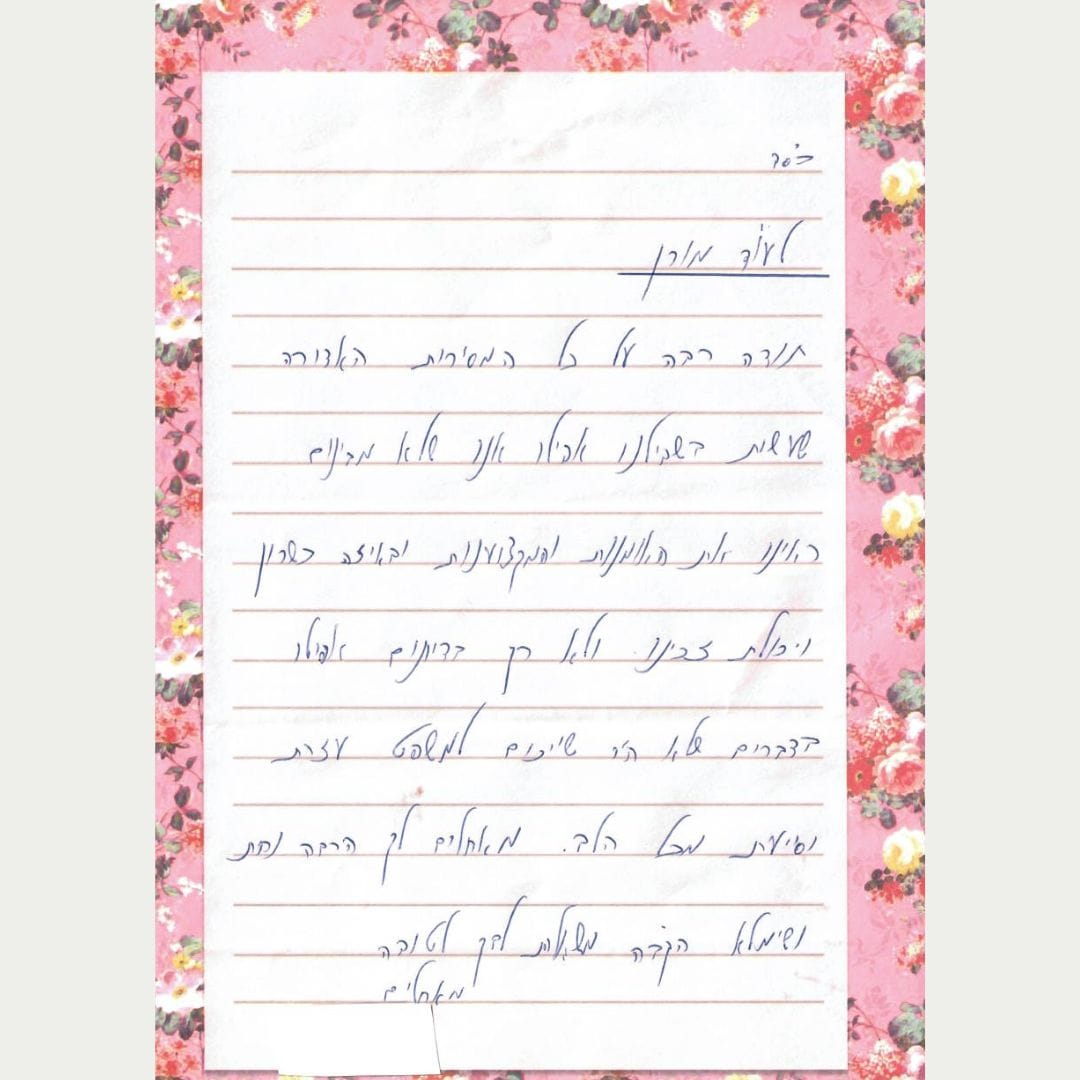 בס"ד
לעו"ד מורן
תודה רבה על כל המסירות האדירה
שעשית בשבילנו אפילו אנו שלא מבינים
ראינו את האומנות והמקצוענות ובאיזה כשרון
ויכולת זכינו. ולא רק בדיונים אפילו
בדברים שלא היו שייכים למשפט עזרת
וסייעת מכל הלב. מאחלים לך הרבה נחת
ושימלא הקב"ה משאלות לבך לטובה
מאחלים